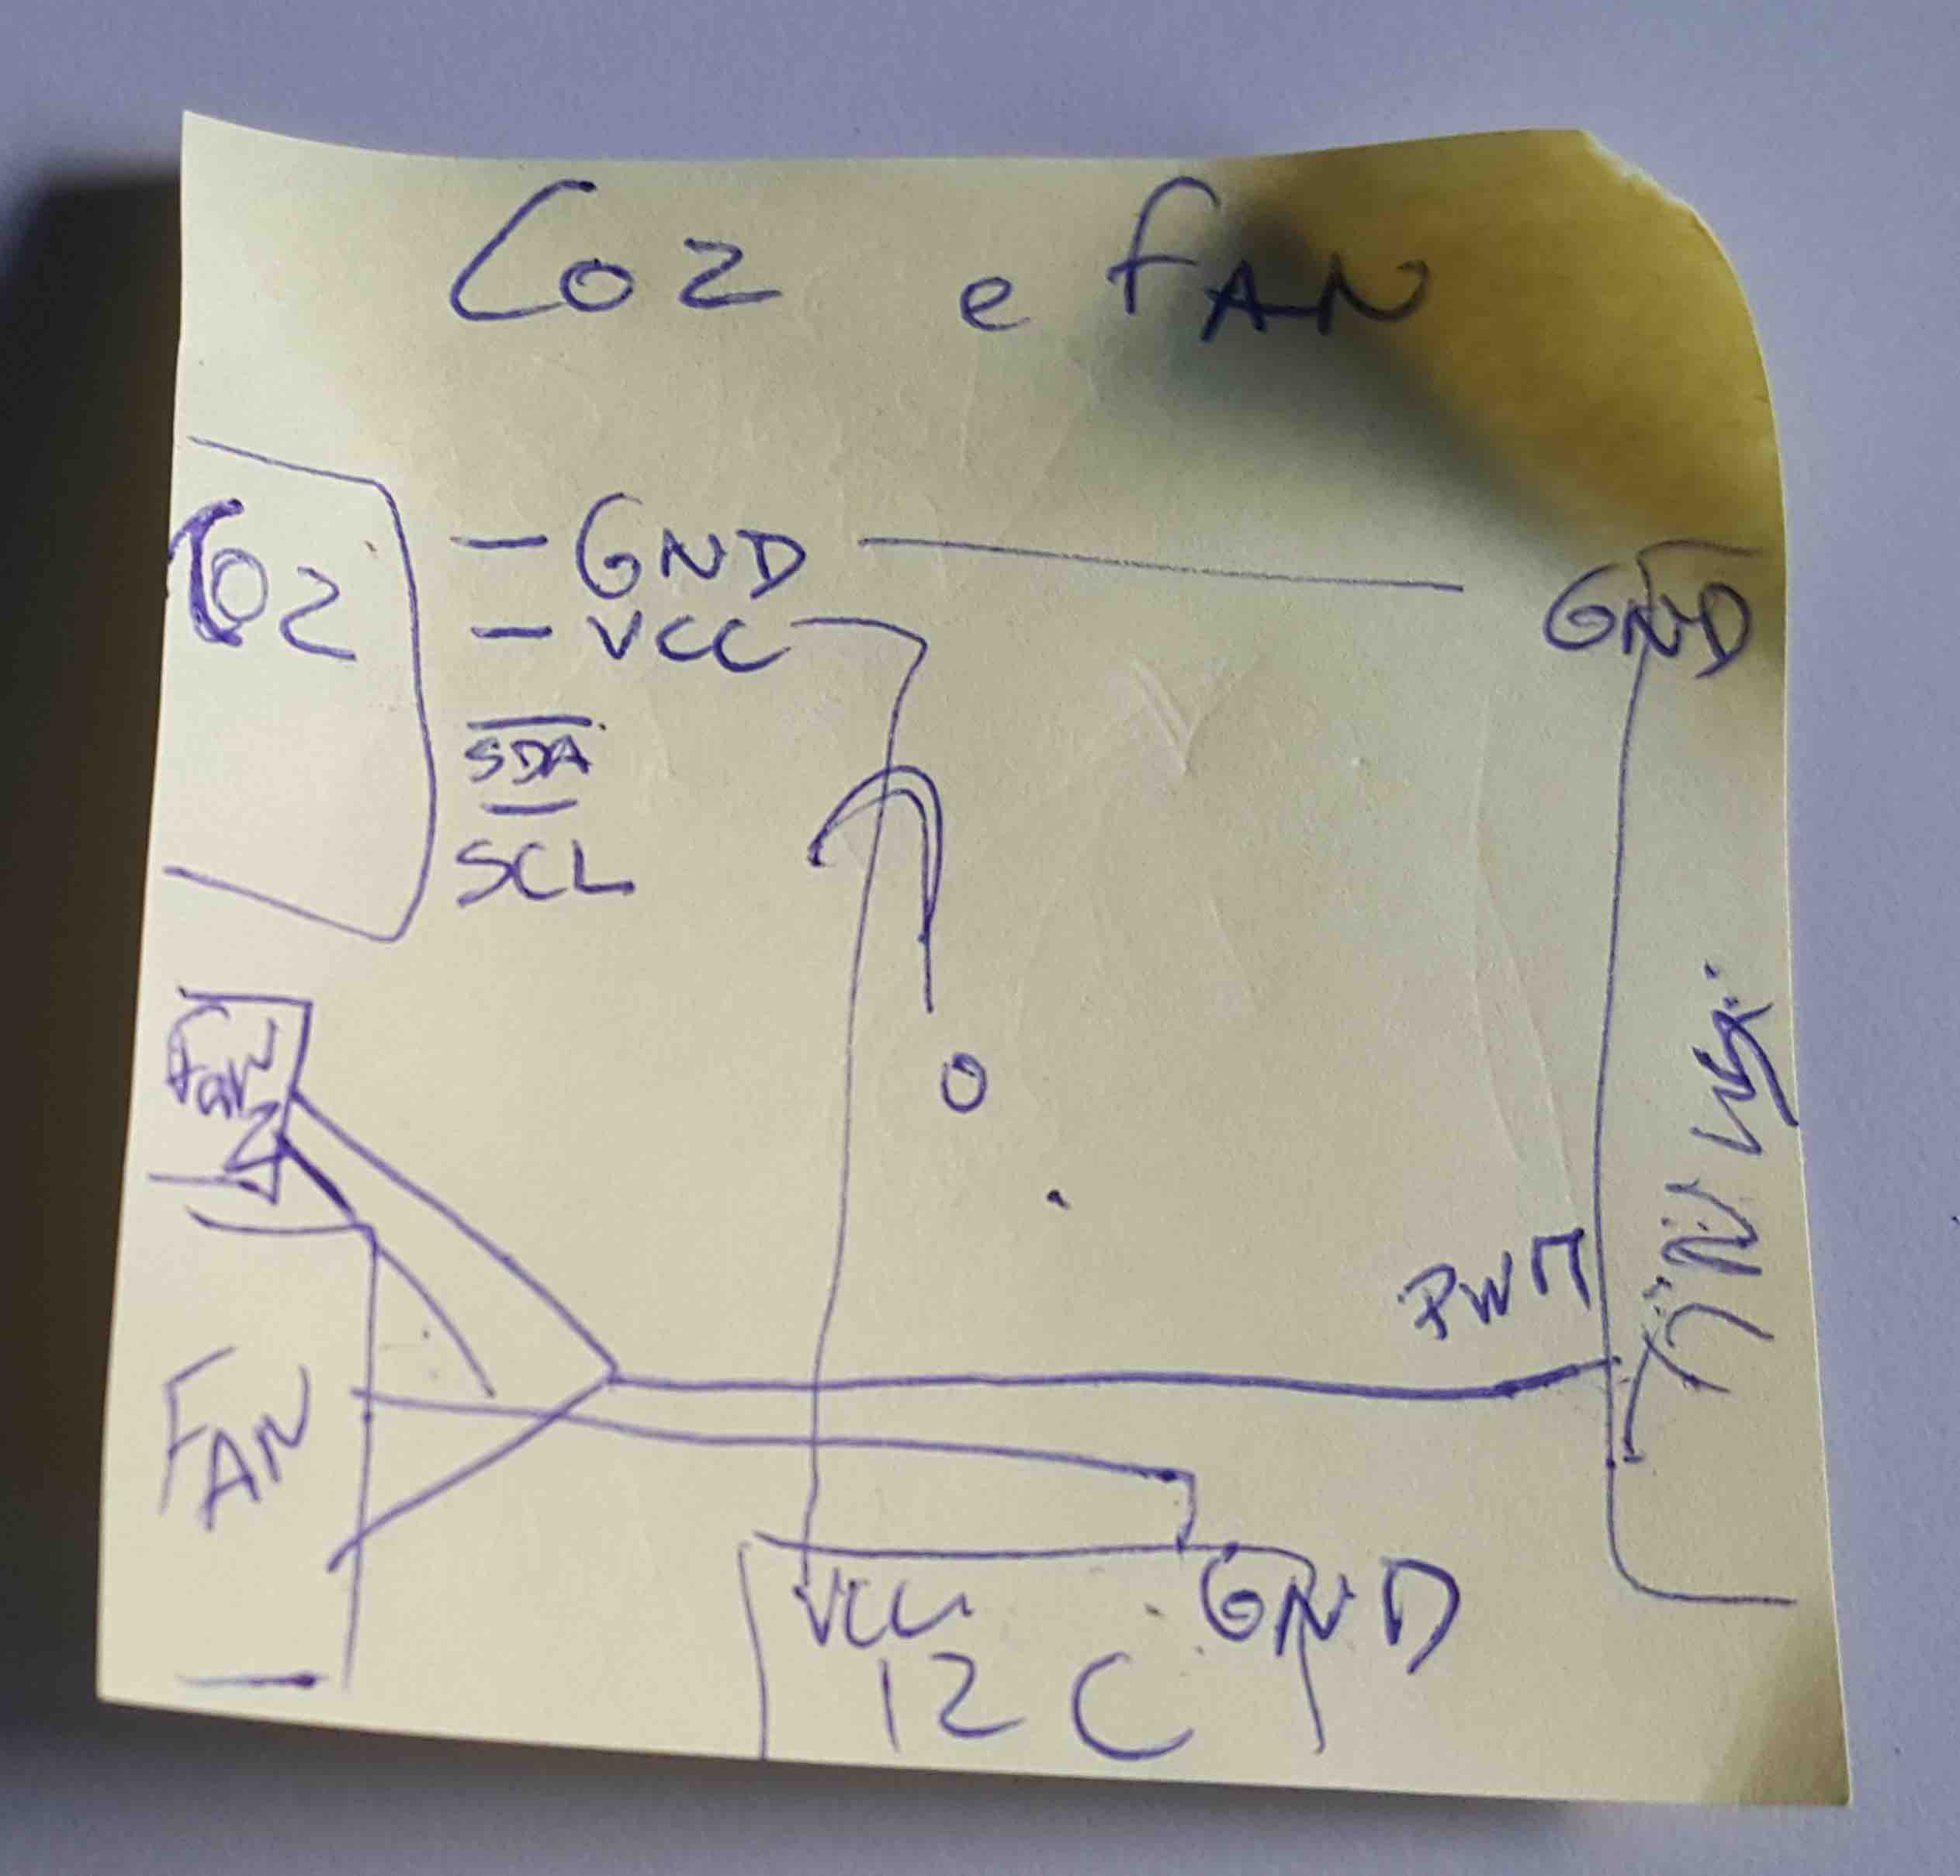 Co2 e fAN
Co2
- GND
GND
- VCC
SDA
SCL
Fan
2
O
PWM
FAN
VCC
GND
I2C